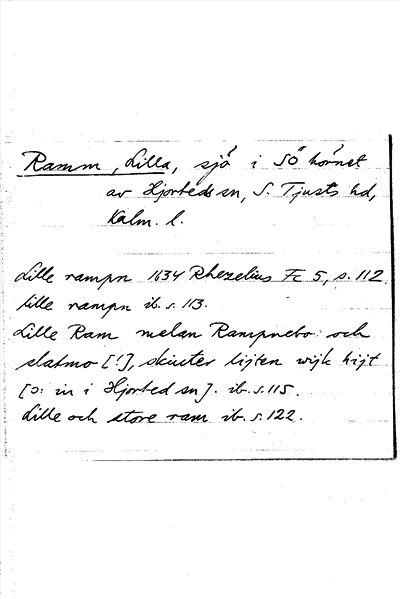 Ramm, Lilla, sjö i SÖ hörnet
av Hjorteds sn, S. Tjusts hd,
Kalm. l.
Lille rampn 1634 Rhezelius Fc 5, s. 112
lille rampn ib. s. 113.
Lille Ram melan Rampnebo och
slatmo [!], skiuter lijten wijk hijt
[ɔ: in i Hjorted sn]. ib. s. 115.
Lille och store ram ib. s. 122.